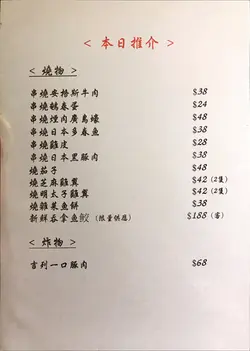 < 本日推介 >
< 燒物 >
串燒安格斯牛肉 $38
串燒鵪春蛋 $24
串燒煙肉廣島蠔 $48
串燒日本多春魚 $38
串燒雞皮 $28
串燒日本黑豚肉 $38
燒茄子 $48
燒芝麻雞翼 $42 (2隻)
燒明太子雞翼 $42 (2隻)
燒雜菜魚餅 $38
新鮮吞拿魚鮫 (限量供應) $188 (客)
< 炸物 >
吉利一口豚肉 $68